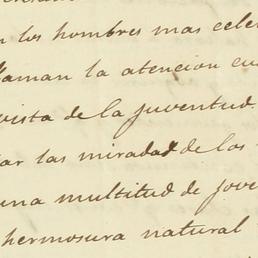 n los hombres mas cele
llaman la atencion en
vista de la juventud.
ar las miradas de los
una multitud de jove
hermosura natural